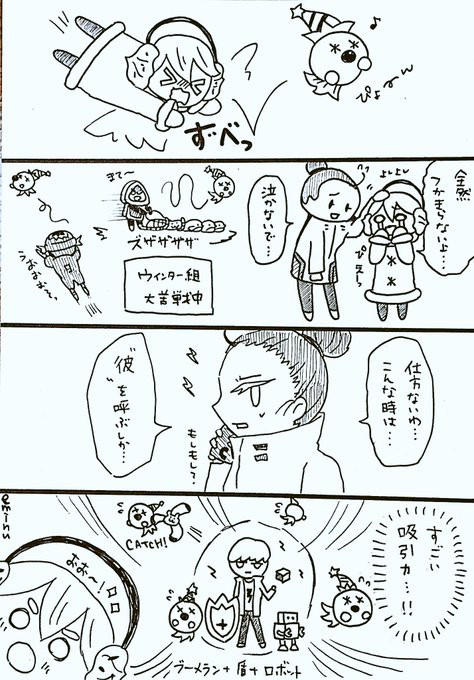 ♪
ぴょーん
ずべっ
全然
つかまらないよ…
よしよし
ぴえーん
泣かないで…
まて〜
ズザザザザ
うおおおお〜、
ウィンター組
大苦戦中
仕方ないわ…
こんな時は…
もしもし?
"彼"を呼ぶしか…
すごい
吸引力…!!
CATCH!
おお〜!
ブーメラン+盾+ロボット
eminu